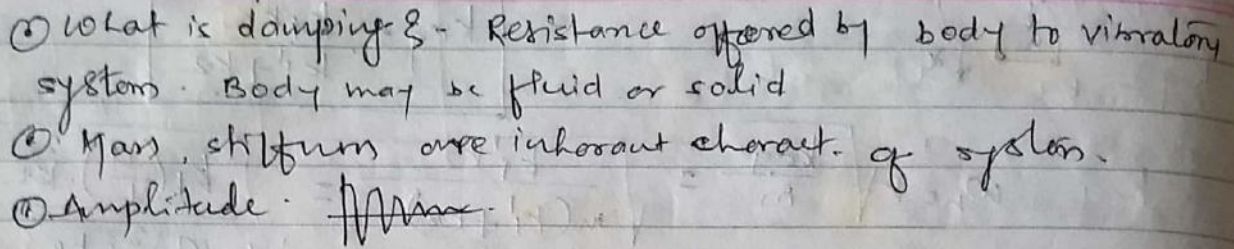 ⊙ What is damping ?- Resistance offered by body to vibratory
system. Body may be fluid or solid
⊙ Mass, stiffness are inherant charact. of system.
⊙ Amplitude.